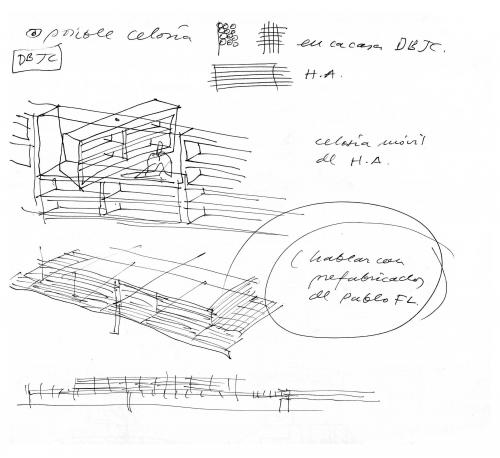 @ posible celosía
en cacasa DBJC.
DBJC
H.A.
celosía móvil
de H.A.
(hablar con
prefabricados
de Pablo FL.